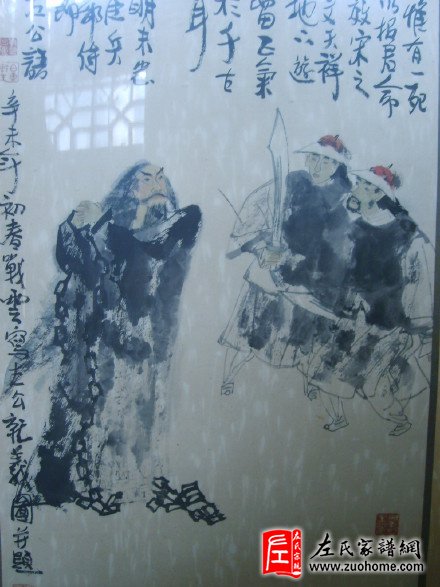 惟有一死
以報君命
宋之
文天祥
地下遊
留正氣
於千古
耳
明末忠
臣兵
部侍
郎
左公語
辛未年初春戰雲寫左公就義圖并題
左氏家譜網
www.zuohome.com